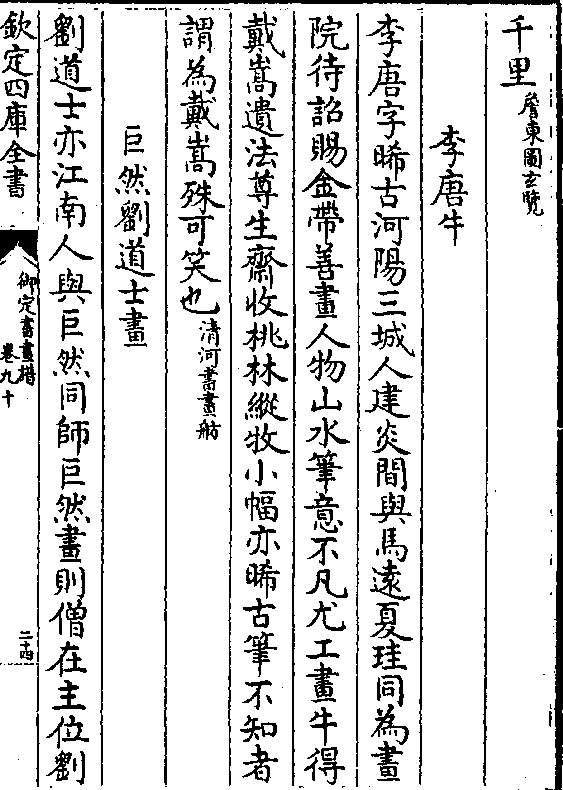 千里詹東圖玄覽
李唐牛
李唐字晞古河陽三城人建炎間與馬遠夏珪同為畫
院待詔賜金帶善畫人物山水筆意不凡尤工畫牛得
戴嵩遺法尊生齋收桃林縱牧小幅亦晞古筆不知者
謂為戴嵩殊可笑也清河書畫舫
巨然劉道士畫
劉道士亦江南人與巨然同師巨然畫則僧在主位劉
欽定四庫全書
御定書畫譜
卷九十
二十四